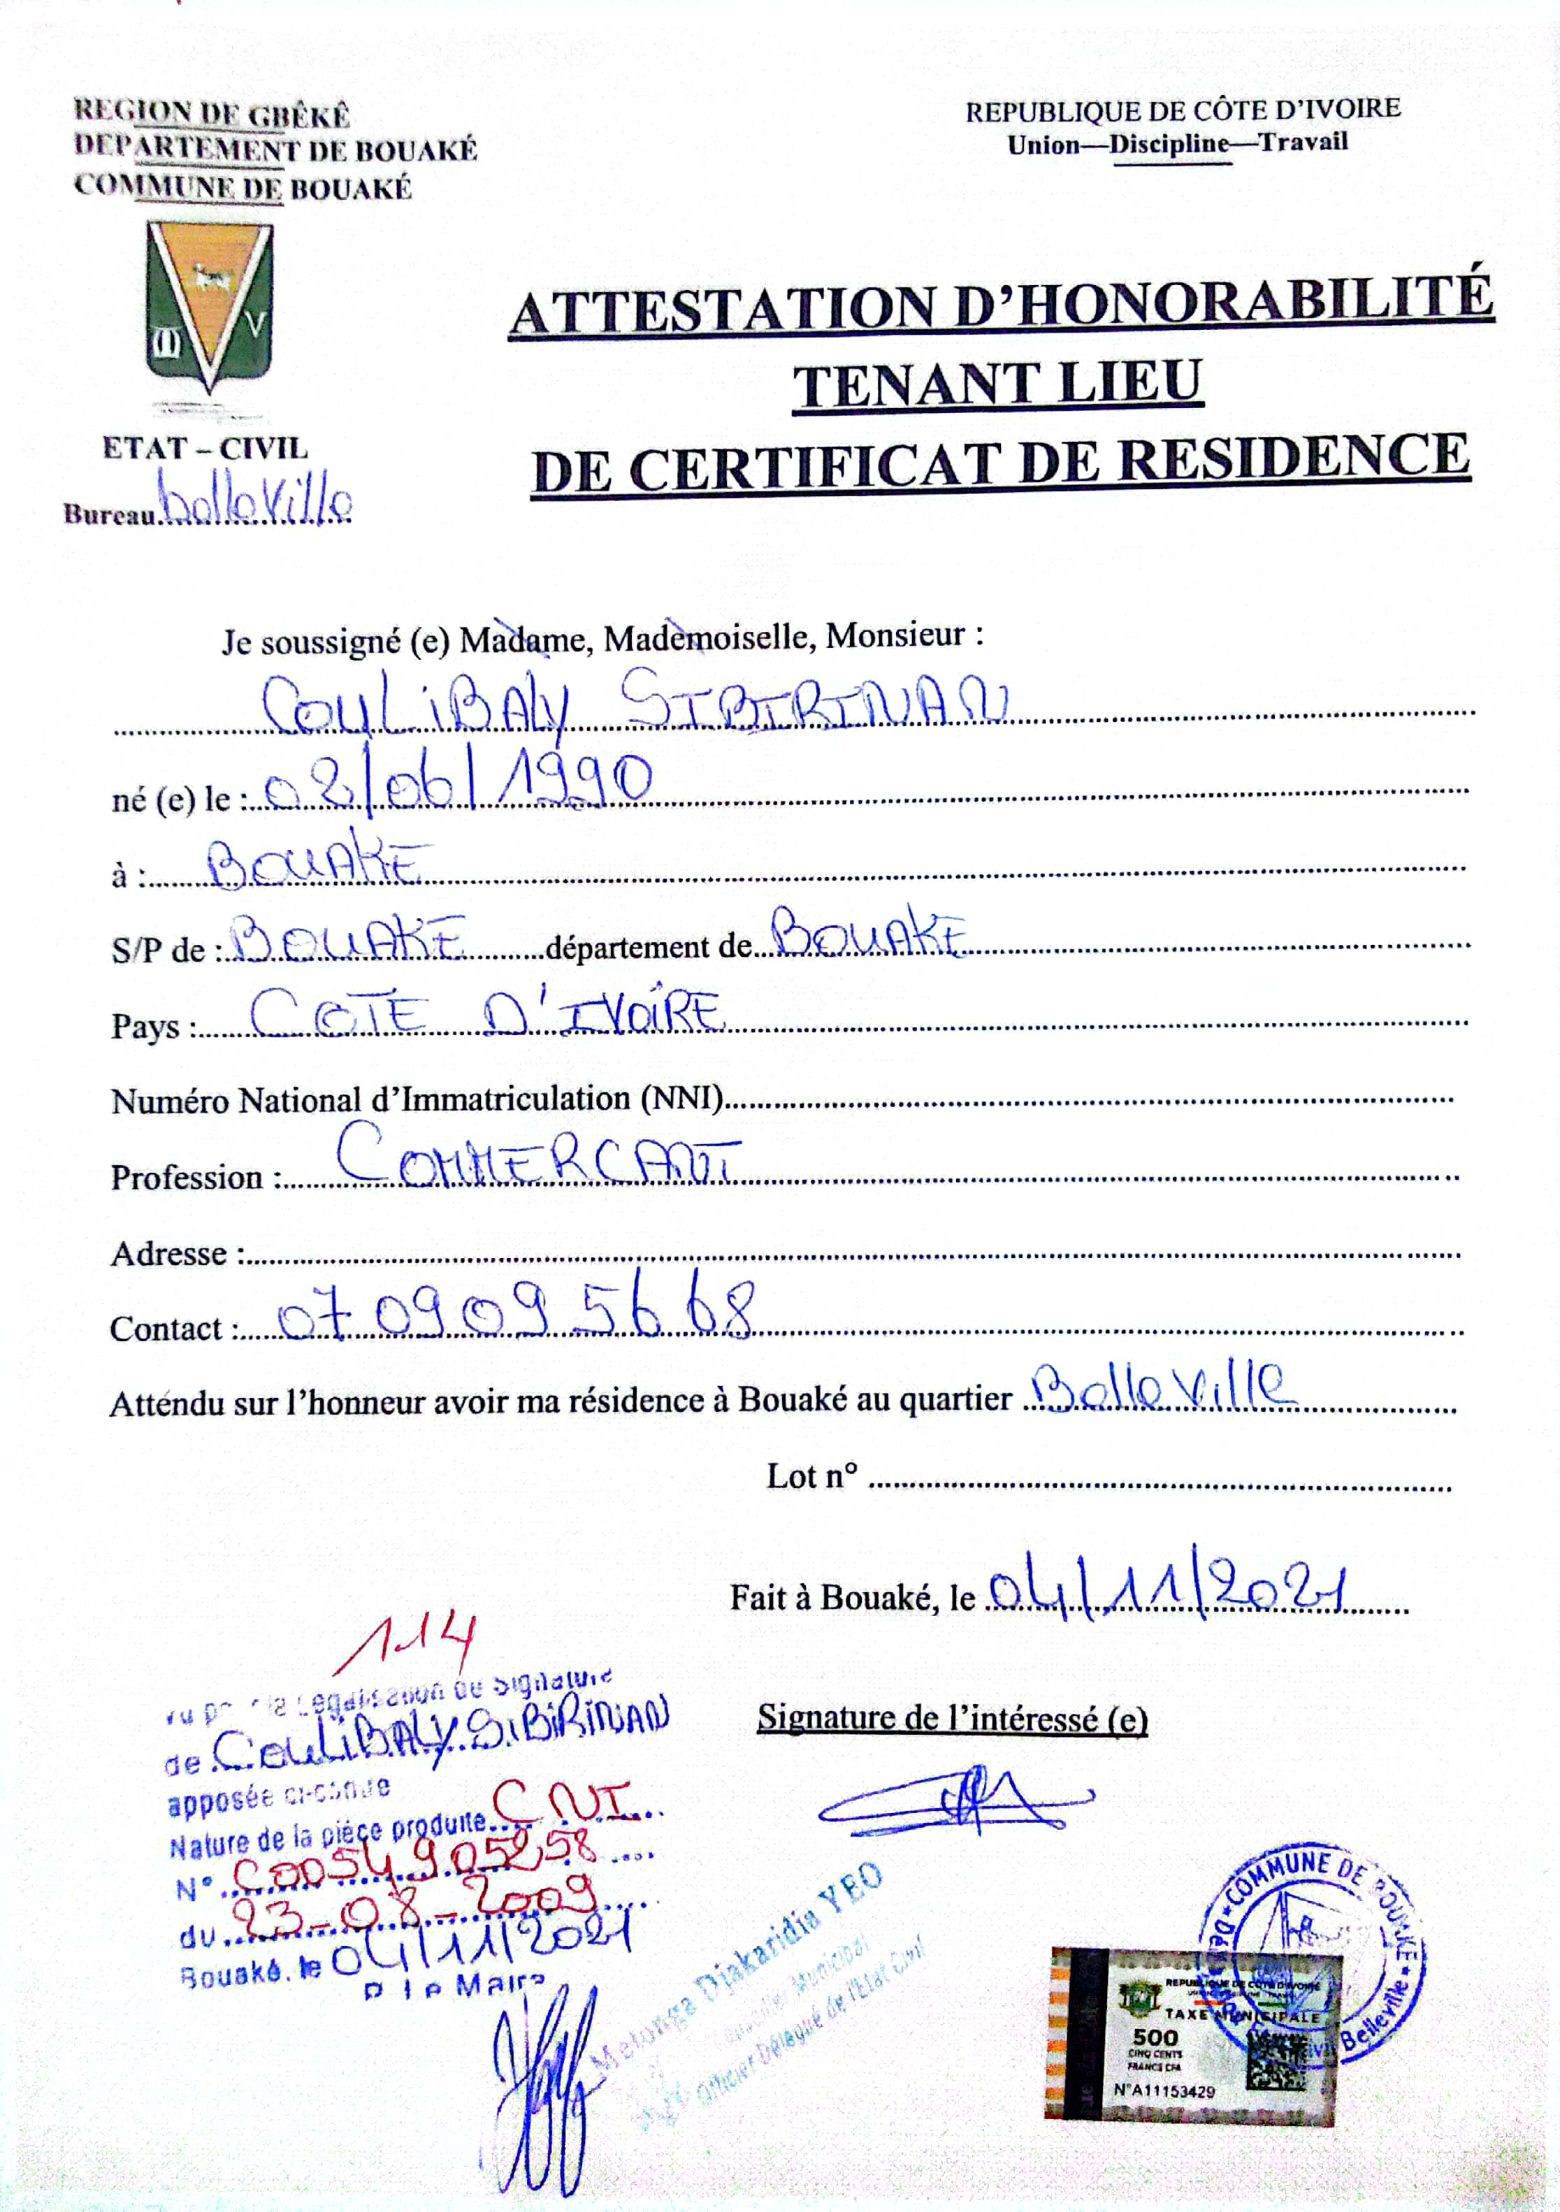 REGION DE GBÊKÊ
DEPARTEMENT DE BOUAKÉ
COMMUNE DE BOUAKÉ
REPUBLIQUE DE CÔTE D'IVOIRE
Union—Discipline—Travail
V
ETAT – CIVIL
Bureau belleville
ATTESTATION D'HONORABILITÉ
TENANT LIEU
DE CERTIFICAT DE RESIDENCE
Je soussigné (e) Madame, Mademoiselle, Monsieur :
COULIBALY SIBIRINAN
né (e) le : 02/06/1990
à : BOUAKE
S/P de : BOUAKE département de BOUAKE
Pays : COTE D'IVOIRE
Numéro National d'Immatriculation (NNI)
Profession : COMMERCANT
Adresse :
Contact : 07 09 09 56 68
Attendu sur l'honneur avoir ma résidence à Bouaké au quartier Belleville
Lot n°
Fait à Bouaké, le 04/11/2021
114
Vu pour la Légalisation de Signature
de COULIBALY SIBIRINAN
apposée ci-contre
Nature de la pièce produite CNI
N° C0054905258
du 23-08-2009
Bouaké, le 04/11/2021
P. Le Maire
Signature de l'intéressé (e)
Metonga Djakaridia YEO
Conseiller Municipal
Officier Délégué de l'Etat Civil
COMMUNE DE BOUAKE
Belleville
REPUBLIQUE DE COTE D'IVOIRE
TAXE MUNICIPALE
500
CINQ CENTS
FRANCS CFA
N°A11153429